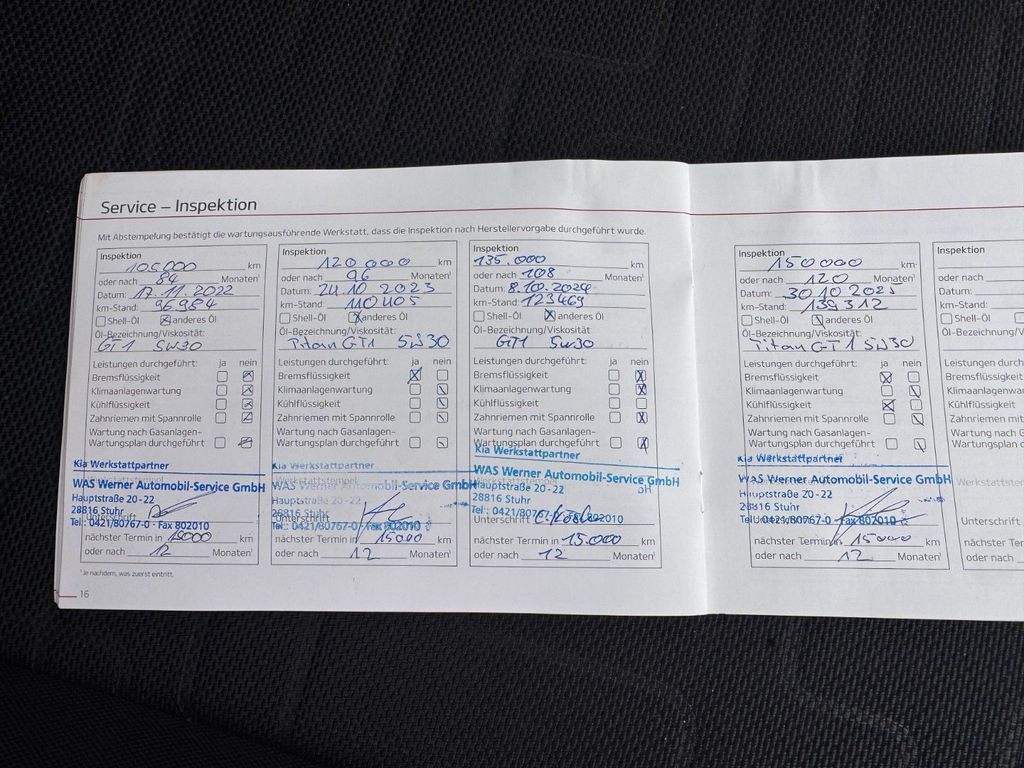 Service – Inspektion
Mit Abstempelung bestätigt die wartungsausführende Werkstatt, dass die Inspektion nach Herstellervorgabe durchgeführt wurde.
Inspektion
105.000 km
oder nach 84 Monaten¹
Datum: 17.11.2022
km-Stand: 96.984
Shell-Öl anderes Öl
Öl-Bezeichnung/Viskosität:
GT1 5W30
Leistungen durchgeführt: ja nein
Bremsflüssigkeit
Klimaanlagenwartung
Kühlflüssigkeit
Zahnriemen mit Spannrolle
Wartung nach Gasanlagen-
Wartungsplan durchgeführt
Kia Werkstattpartner
WAS Werner Automobil-Service GmbH
Hauptstraße 20-22
28816 Stuhr
Tel.: 0421/80767-0 · Fax 802010
Unterschrift
nächster Termin in 15000 km
oder nach 12 Monaten¹
Inspektion
120000 km
oder nach 96 Monaten¹
Datum: 24.10.2023
km-Stand: 110405
Shell-Öl anderes Öl
Öl-Bezeichnung/Viskosität:
Titan GT1 5W30
Leistungen durchgeführt: ja nein
Bremsflüssigkeit
Klimaanlagenwartung
Kühlflüssigkeit
Zahnriemen mit Spannrolle
Wartung nach Gasanlagen-
Wartungsplan durchgeführt
Kia Werkstattpartner
WAS Werner Automobil-Service GmbH
Hauptstraße 20-22
28816 Stuhr
Tel.: 0421/80767-0 · Fax 802010
Unterschrift
nächster Termin in 15000 km
oder nach 12 Monaten¹
Inspektion
135.000 km
oder nach 108 Monaten¹
Datum: 8.10.2024
km-Stand: 123469
Shell-Öl anderes Öl
Öl-Bezeichnung/Viskosität:
GT1 5W30
Leistungen durchgeführt: ja nein
Bremsflüssigkeit
Klimaanlagenwartung
Kühlflüssigkeit
Zahnriemen mit Spannrolle
Wartung nach Gasanlagen-
Wartungsplan durchgeführt
Kia Werkstattpartner
WAS Werner Automobil-Service GmbH
Hauptstraße 20-22
28816 Stuhr
Tel.: 0421/80767-0 · Fax 802010
Unterschrift
nächster Termin in 15.000 km
oder nach 12 Monaten¹
¹ Je nachdem, was zuerst eintritt.
16
Inspektion
150000 km
oder nach 120 Monaten¹
Datum: 30.10.2025
km-Stand: 139312
Shell-Öl anderes Öl
Öl-Bezeichnung/Viskosität:
Titan GT1 5W30
Leistungen durchgeführt: ja nein
Bremsflüssigkeit
Klimaanlagenwartung
Kühlflüssigkeit
Zahnriemen mit Spannrolle
Wartung nach Gasanlagen-
Wartungsplan durchgeführt
Kia Werkstattpartner
WAS Werner Automobil-Service GmbH
Hauptstraße 20-22
28816 Stuhr
Tel.: 0421/80767-0 · Fax 802010
nächster Termin in 15000 km
oder nach 12 Monaten¹
Inspektion
oder nach
Datum:
km-Stand:
Shell-Öl
Öl-Bezeichnung/V
Leistungen durchge
Bremsflüssigkeit
Klimaanlagenwartu
Kühlflüssigkeit
Zahnriemen mit Sp
Wartung nach Gasa
Wartungsplan durch
Werkstattstem
Unterschrift
nächster Ter
oder nach